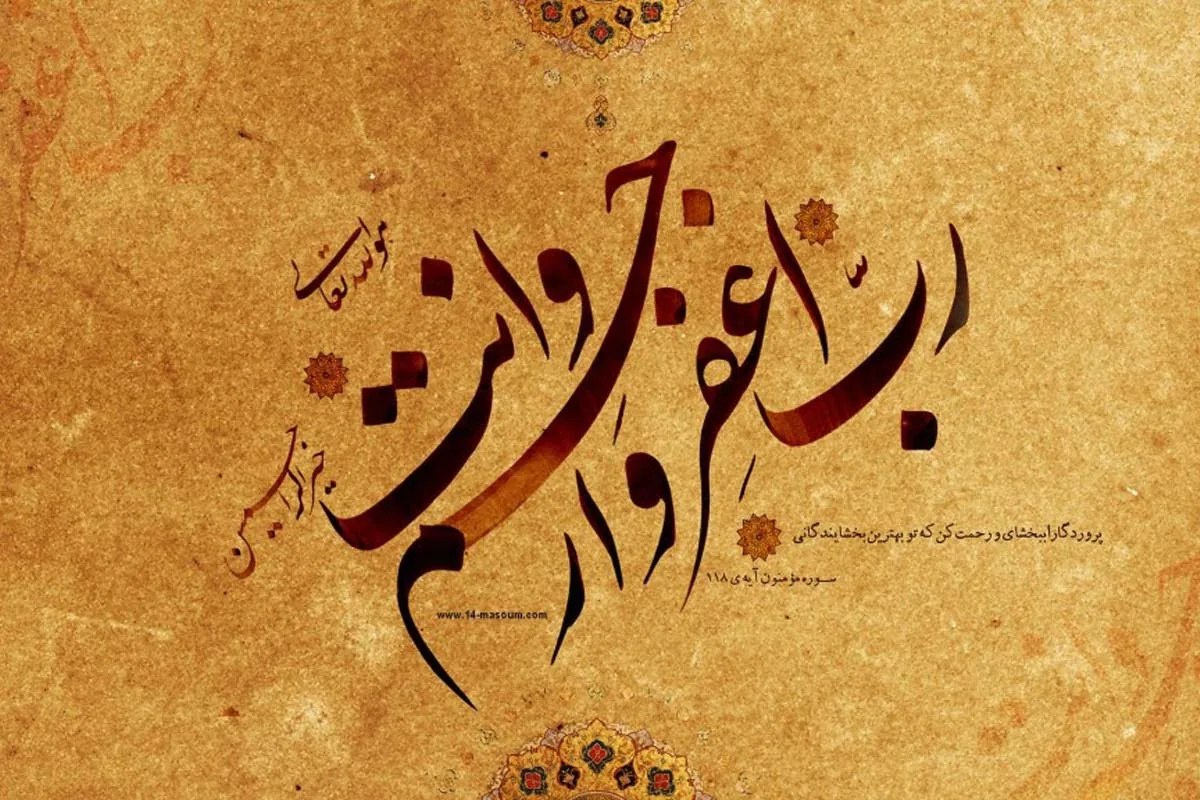 رب اغفر وارحم وانت
خیر الراحمین
پروردگارا ببخشای و رحمت کن که تو بهترین بخشایندگانی
سوره مؤمنون آیه ی ۱۱۸
www.14-masoum.com